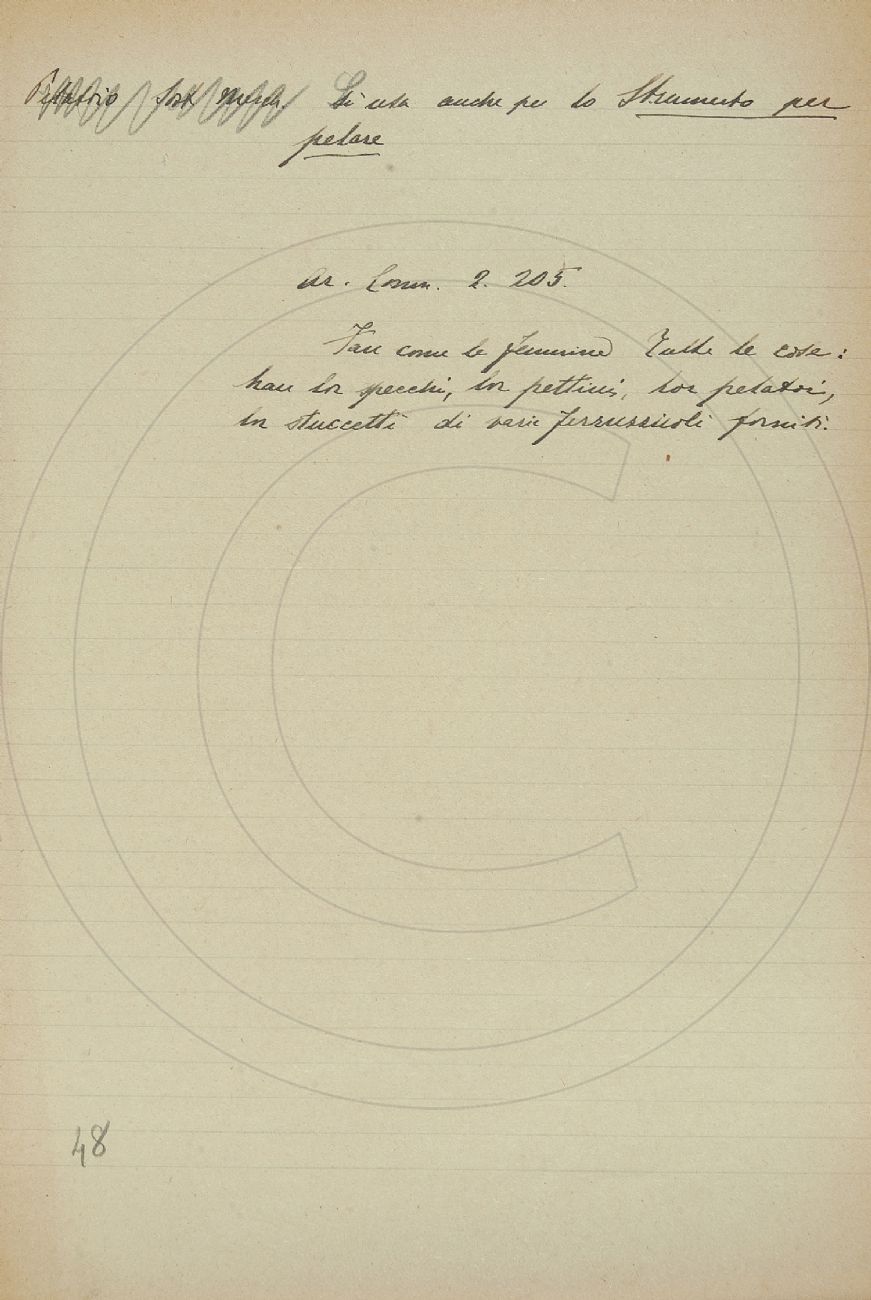 Pelatoio sost. masch. Si usa anche per lo Strumento per
pelare
Ar. Comm. 2. 205.
Fan come le femmine tutte le cose:
han lor specchi, lor pettini, lor pelatoi,
lor stuccetti di varii ferruzzuoli forniti.
48